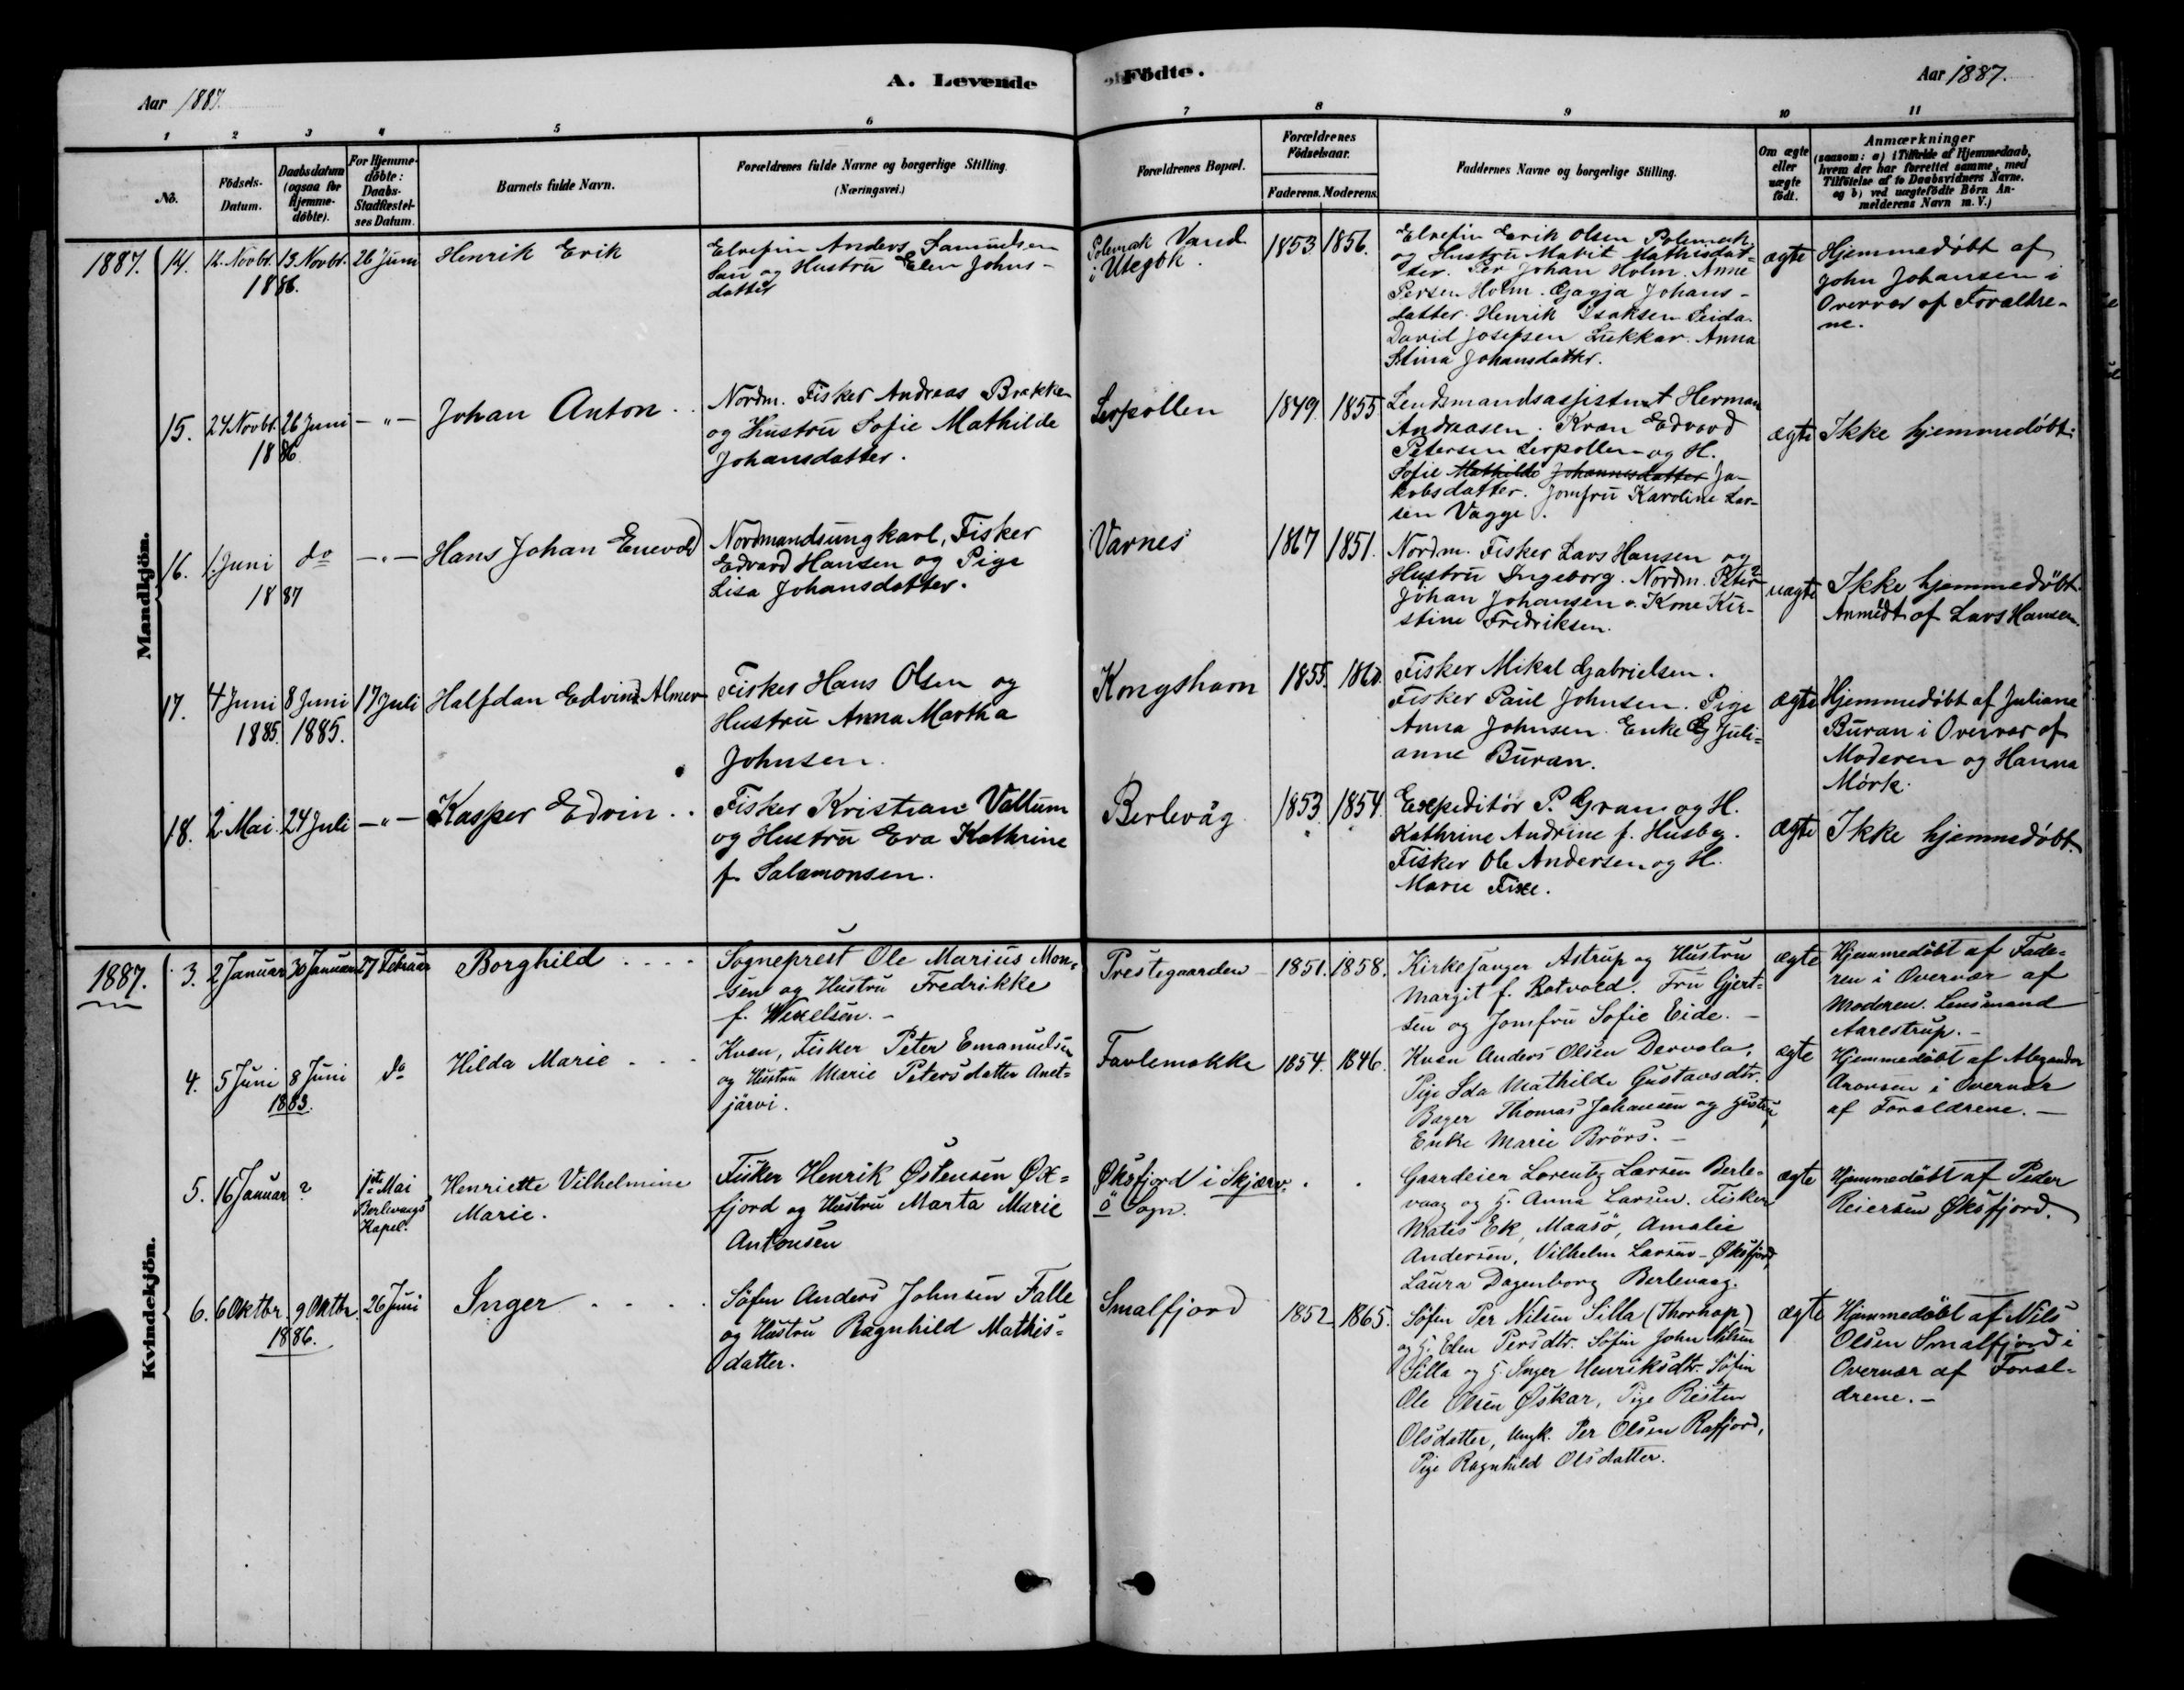 A. Levende Födte.
Aar 1887.
Aar 1887.
1 2 3 4 5 6 7 8 9 10 11
No.
Födsels-
Datum.
Daabsdatum
(ogsaa for
Hjemme-
döbte).
For Hjemme-
döbte:
Daabs-
Stadfæstel-
ses Datum.
Barnets fulde Navn.
Forældrenes fulde Navne og borgerlige Stilling.
(Næringsvei.)
Forældrenes Bopæl.
Forældrenes
Födselsaar.
Faderens. Moderens.
Faddernes Navne og borgerlige Stilling.
Om ægte
eller
uægte
født.
Anmærkninger
(saasom: a) i Tilfælde af Hjemmedaab,
hvem der har forrettet samme, med
Tilföielse af to Daabsvidners Navne.
og b) ved uægtefödte Börn An-
melderens Navn m. V.)
Mandkjön.
1887.
14.
12. Novbr. 13. Novbr.
1886.
26 Juni
Henrik Erik
Elvefin Anders Samuelsen
Sau og Hustru Elen Johns-
datter
Polmak Vand
i Utsjok.
1853 1856.
Elvefin Erik Olsen Polmak
og Hustru Marit Mathisdat-
ter. Per Johan Holm. Anne
Persen Holm. Gagja Johans-
datter. Henrik Isaksen Seida.
David Josefsen Lukkar. Anna
Stina Johansdatter.
ægte
Hjemmedøbt af
John Johansen i
Overvær af Forældre-
ne.
15.
24 Novbr. 26 Juni
1886.
- " -
Johan Anton . .
Nordm. Fisker Andreas Brække
og Hustru Sofie Mathilde
Johansdatter.
Lerpollen
1849. 1855
Lendsmandsassistent Herman
Andreasen. Kvæn Edvard
Petersen Lerpollen og H.
Sofie Mathilde Johannesdatter Ja-
kobsdatter. Jomfru Karoline Lar-
sen Vagge.
ægte
Ikke hjemmedøbt.
16.
1. Juni
1887
do
- " -
Hans Johan Enevold
Nordmandsungkarl, Fisker
Edvard Hansen og Pige
Lisa Johansdatter.
Varnes
1867 1851.
Nordm. Fisker Lars Hansen og
Hustru Ingeborg. Nordm. Peter
Johan Johansen o. Kone Kir-
stine Fredriksen.
uægte
Ikke hjemmedøbt.
Anmeldt af Lars Hansen.
17.
4 Juni 8 Juni
1885. 1885.
17 Juli
Halfdan Edvind Almer
Fisker Hans Olsen og
Hustru Anna Martha
Johnsen.
Kongshavn
1855.
Fisker Mikal Gabrielsen.
Fisker Paul Johnsen. Pige
Anna Johnsen. Enke Juli-
anne Buran.
ægte
Hjemmedøbt af Juliane
Buran i Overvær af
Moderen og Hanna
Mørk.
18.
2. Mai. 24 Juli
- " -
Kasper Edvin . .
Fisker Kristian Valtum
og Hustru Eva Kathrine
f. Salamonsen.
Berlevåg
1853. 1854.
Expeditør P. Gram og H.
Kathrine Andrine f. Husby.
Fisker Ole Andersen og H.
Marie Fixe.
ægte
Ikke hjemmedøbt.
Kvindekjön.
1887.
3.
2 Januar 30 Januar 27 Februar
Borghild . . . .
Sogneprest Ole Marius Mon-
sen og Hustru Fredrikke
f. Wexelsen. -
Prestegaarden
1851. 1858.
Kirkesanger Astrup og Hustru
Margit f. Rotvold. Fru Gjert-
sen og Jomfru Sofie Eide. -
ægte
Hjemmedøbt af Fade-
ren i Overvær af
Moderen. Lensmand
Aarestrup. -
4.
5 Juni 8 Juni
1883.
do
Hilda Marie . . .
Kvæn, Fisker Peter Emanuelsen
og Hustru Marie Petersdatter Anet-
järvi.
Favlemokke
1854. 1846.
Kvæn Anders Olsen Dervola,
Pige Ida Mathilde Gustavsdtr.
Bager Thomas Johansen og Hustru,
Enke Marie Brörs. -
ægte
Hjemmedøbt af Alexander
Aronsen i Overvær
af Forældrene. -
5.
16 Januar ?
1ste Mai
Berlevaags
Kapel.
Henriette Vilhelmine
Marie.
Fisker Henrik Østensen Øx-
fjord og Hustru Marta Marie
Antonsen
Øksfjord i Skjærv-
ö Sogn.
. .
Gaardeier Lorentz Larsen Berle-
vaag og H. Anna Larsen. Fisker
Mats Ek, Maasö, Amalie
Andersen, Vilhelm Larsen - Øksfjord
Laura Dagenborg Berlevaag.
ægte
Hjemmedøbt af Peder
Reiersen Øksfjord.
6.
6 Oktbr. 9 Oktbr.
1886.
26 Juni
Inger . . . .
Søfin Anders Johnsen Falle
og Hustru Ragnhild Mathis-
datter.
Smalfjord
1852. 1865.
Søfin Per Nilsen Silla (Thorhop)
og H. Elen Persdtr. Søfin John Nilsen
Silla og H. Inger Henriksdtr. Søfin
Ole Olsen Øskar, Pige Risten
Olsdatter, Ungk. Per Olsen Rafjord,
Pige Ragnhild Olsdatter.
ægte
Hjemmedøbt af Nils
Olsen Smalfjord i
Overvær af Foræl-
drene. -